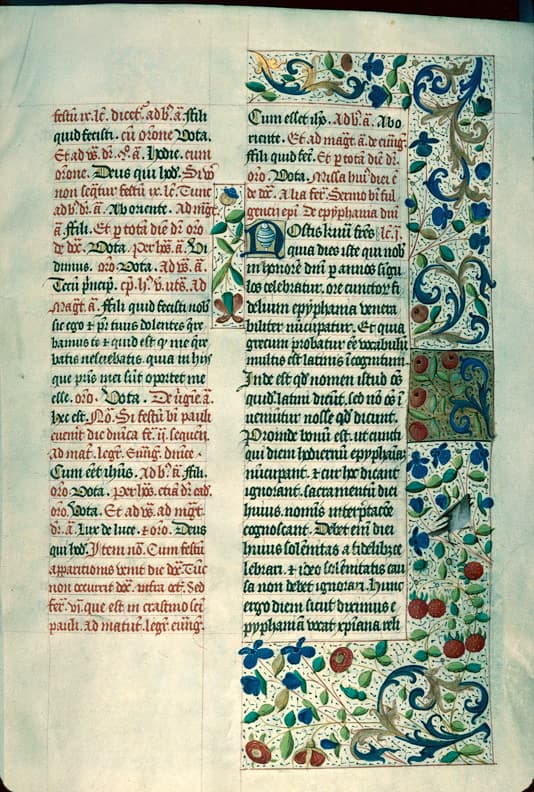 festū ix. lc̄. dicet᷑. ad b̄. a᷑. ffili
quid fecisti. cū orōne Vota.
Et ad v̄s. dr̄. a᷑. Hodie. cum
orōne. Deus qui hod̄. Si v̄o
non seq̄tur festū ix. lc̄. Tunc
ad b̄. dr̄. a᷑. Ab oriente. Ad maḡt.
a᷑. ffili. Et p totā diē dr̄ orō
de dōc̄. Vota. Per hōs. a᷑. Vi
dimus. orō Vota. Ad v̄s. a᷑.
Tecū p̄ncip̄. cp̄. h̄. v̄. vt s̄. Ad
Maḡt. a᷑. ffili quid fecisti nob̄
sic ego ⁊ p̄r tuus dolentes q̄re
bamus te ⁊ quid est q̄ me q̄re
batis nesciebatis. quia in hijs
que pr̄is mei sūt oportet me
esse. orō. Vota. De v̄gīe. a᷑.
hec est. Nō. Si festū bi pauli
euenit die dn̄ica
Cum eēt ihūs. Ad b̄. a᷑. ffili.
orō Vota. Per hōs.
orō. Vota. Et ad v̄s. ad maḡt
dr̄. a᷑. Lux de luce. ⁊ orō. Deus
qui hod̄. Item nō. Cum festū
apparitionis venit die dōc̄. Tūc
non occurit dōc̄. infra oct̄. Sed
fer̄. vj. que est in crastino sc̄i
pauli. Ad matut̄. legr̄ euāḡ.
Cum esset ihs̄. Ad b̄. a᷑. Ab o
riente. Et ad maḡt. a᷑. de euāḡ.
ffili quid fec̄. Et p totā diē dr̄.
orō. Vota. Missa hui᷒ diei ē
de dōc̄. Alia fer̄. Sermo bī ful
gencij ep̄i De epyphania dn̄i
Nostis kmī fr̄es lc̄. i.
qua dies iste qui nob̄
in honorē dn̄i p annos sīgu
los celebratur. ore cunctor̄ fi
delium epyphania venera
biliter nūcupatur. Et quia
grecum probatur eē vocabulū
multis est latinis īcognitum
Inde est qd̄ nomen istud oēs
quid latini dicūt. sed nō oēs ī
uemūtur nosse qd̄ dicunt.
Proinde bonū est. ut cuncti
qui diem hodiernū epyphaniā
nūcupant. ⁊ cur hec dicant
ignorant. sacramentū diei
huius. nominīs interp̄tacōe
cognoscant. Debet enī diei
huius solēnitas a fidelib᷒ ce
lebrari. ⁊ ideo solēnitatis cau
sa non debet ignorari. Hunc
ergo diem sicut diximus e
pyphaniā vocat xp̄iana reli